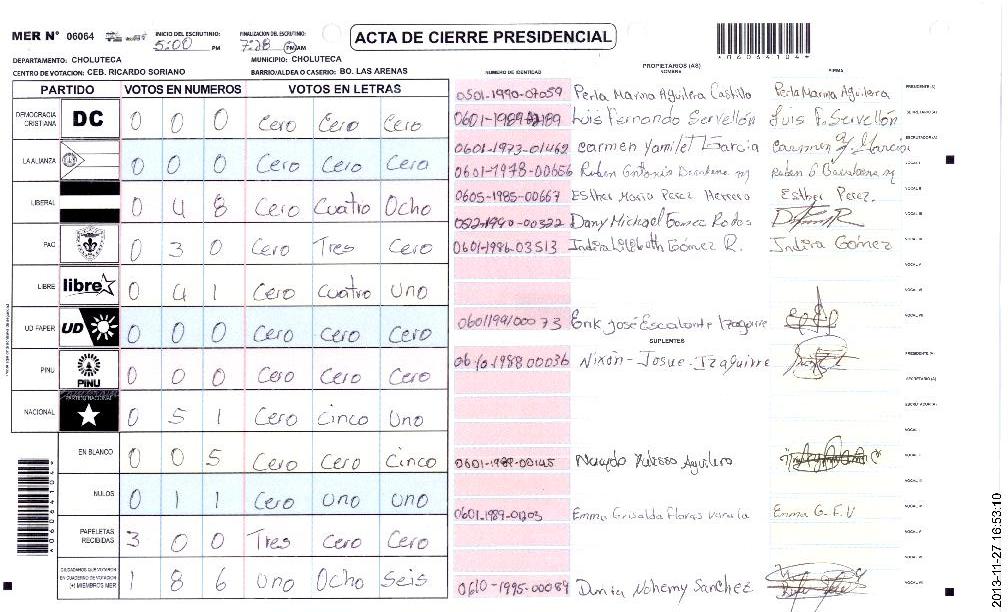 MER N° 06064 INICIO DEL ESCRUTINIO: 5:00 PM FINALIZACION DEL ESCRUTINIO: 7:28 PM AM ACTA DE CIERRE PRESIDENCIAL
*06064104*
DEPARTAMENTO: CHOLUTECA MUNICIPIO: CHOLUTECA
CENTRO DE VOTACION: CEB. RICARDO SORIANO BARRIO/ALDEA O CASERIO: BO. LAS ARENAS
PARTIDO VOTOS EN NUMEROS VOTOS EN LETRAS
DEMOCRACIA CRISTIANA DC 0 0 0 Cero Cero Cero
LA ALIANZA 0 0 0 Cero Cero Cero
LIBERAL 0 4 8 Cero Cuatro Ocho
PAC 0 3 0 Cero Tres Cero
LIBRE libre 0 4 1 Cero Cuatro Uno
UD FAPER UD 0 0 0 Cero Cero Cero
PINU PINU 0 0 0 Cero Cero Cero
NACIONAL PARTIDO NACIONAL 0 5 1 Cero Cinco Uno
EN BLANCO 0 0 5 Cero Cero Cinco
NULOS 0 1 1 Cero Uno Uno
PAPELETAS RECIBIDAS 3 0 0 Tres Cero Cero
CIUDADANOS QUE VOTARON EN CUADERNO DE VOTACION (+) MIEMBROS MER 1 8 6 Uno Ocho Seis
*06064104*
NUMERO DE IDENTIDAD PROPIETARIOS (AS) NOMBRE FIRMA
0501-1990-07059 Perla Marina Aguilera Castillo Perla Marina Aguilera PRESIDENTE (A)
0601-1989- Luis Fernando Servellón Luis F. Servellón SECRETARIO (A)
0601-1973-01462 Carmen Yamilet Garcia Carmen Y. Garcia ESCRUTADOR (A)
0601-1978-00656 Ruben Antonio VOCAL I
0605-1985-00667 Esther Maria Perez Herrera Esther Perez. VOCAL II
Dany Michael Gomez Rodas VOCAL III
0601-1986-03513 Indira Lilibeth Gómez R. Indira Gómez
0601199100073 Erik José Escalante Izaguirre
SUPLENTES
1988 00036 Nixon - Josue - Izaguirre PRESIDENTE (A)
SECRETARIO (A)
ESCRUTADOR (A)
0601-1989-00145 Aguilera
0601-1989-01203 Emma Griselda Flores Varela Emma G. F. V
0610-1995-00089 Dunia Nohemy Sanchez
2013-11-27 16:53:10